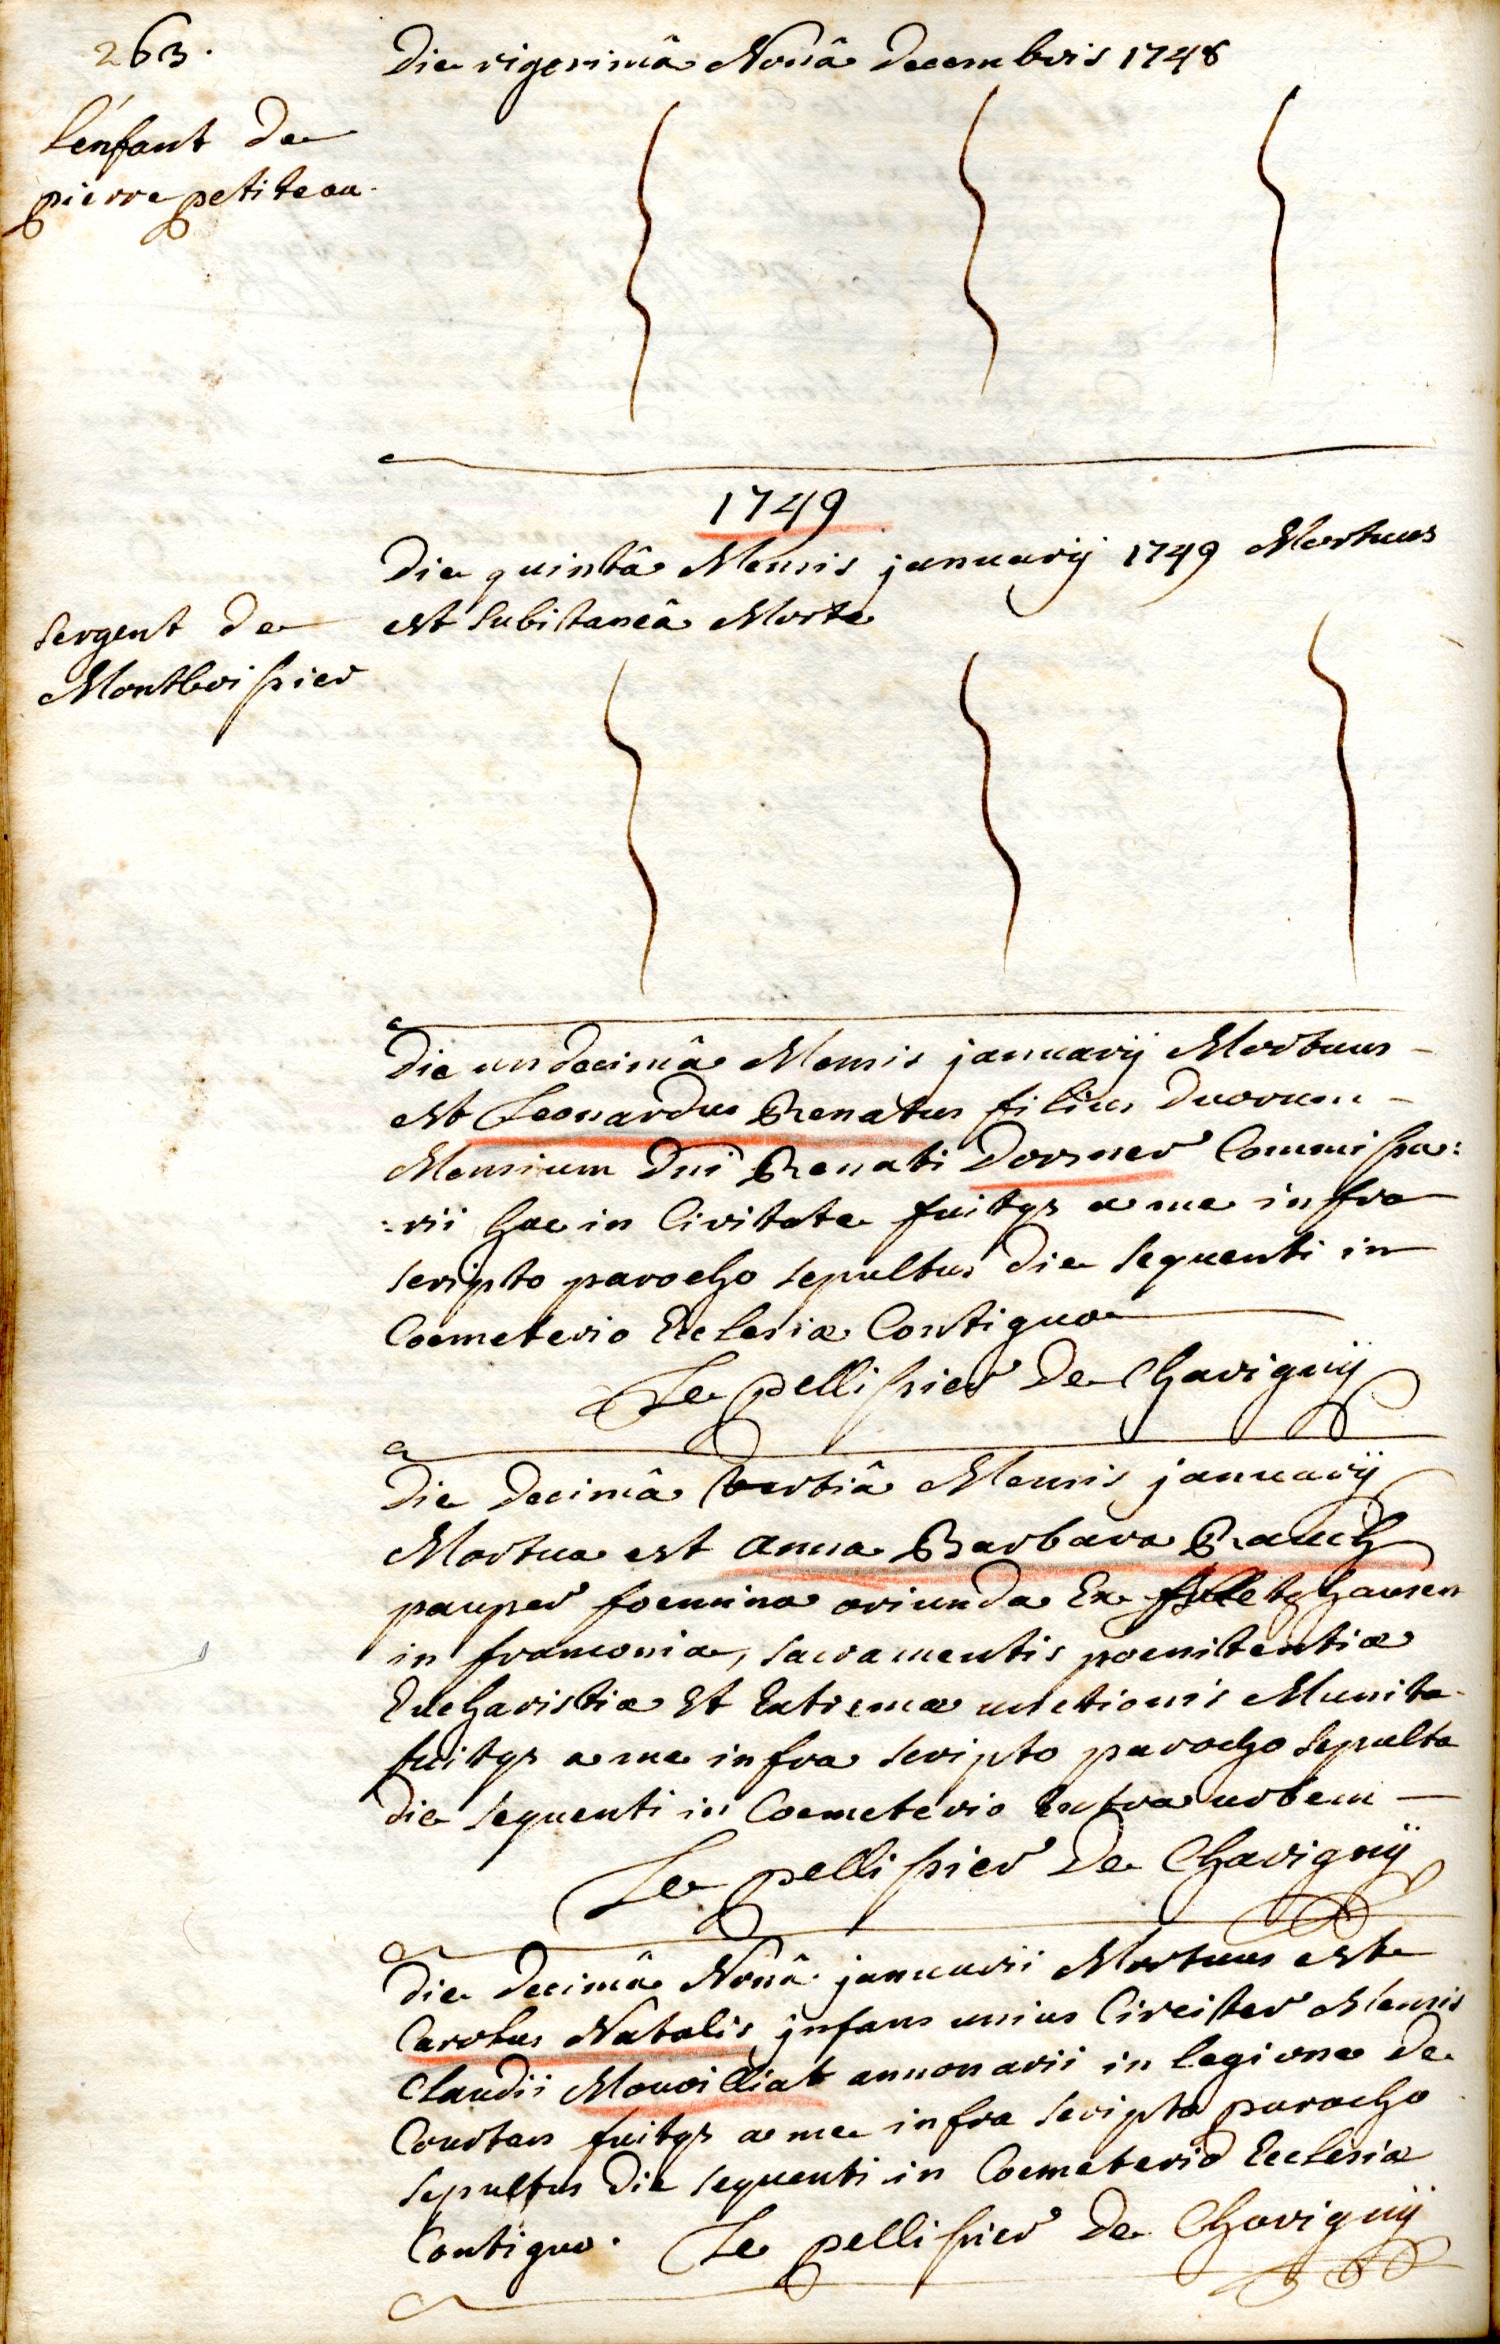 263.
Die vigesimâ Nonâ Decembris 1748
l'enfant de
pierre petiteau.
1749
Die quintâ Mensis januarij 1749 Mortuus
est subitaneâ Morte
sergent de
Montboissier
Die undecimâ Mensis januarij Mortuus
est Leonardus Renatus filius duorum
Mensium Dni Renati Dorsner Commissa:
:rii hac in Civitate fuitqs a me infra
scripto parocho sepultus die sequenti in
Coemeterio Ecclesiæ Contiguo
Le pellissier de Chavignÿ
Die decimâ tertiâ Mensis januarÿ
Mortua est anna Barbara Rauch
pauper foemina oriunda Ex
in franconia, sacramentis poenitentiæ
Eucharistiæ Et Extremæ unctionis Munita
fuitqs a me infra scripto parocho sepulta
die sequenti in Coemeterio Extra urbem
Le pellissier de Chavignÿ
Die decimâ Nonâ januarii Mortuus est
Carolus Natalis jnfans unius Circiter Mensis
Claudii annonarii in legione de
Courten fuitqs a me infra scripto parocho
sepultus die sequenti in Coemeterio Ecclesiæ
Contiguo. Le pellissier de Chavignÿ